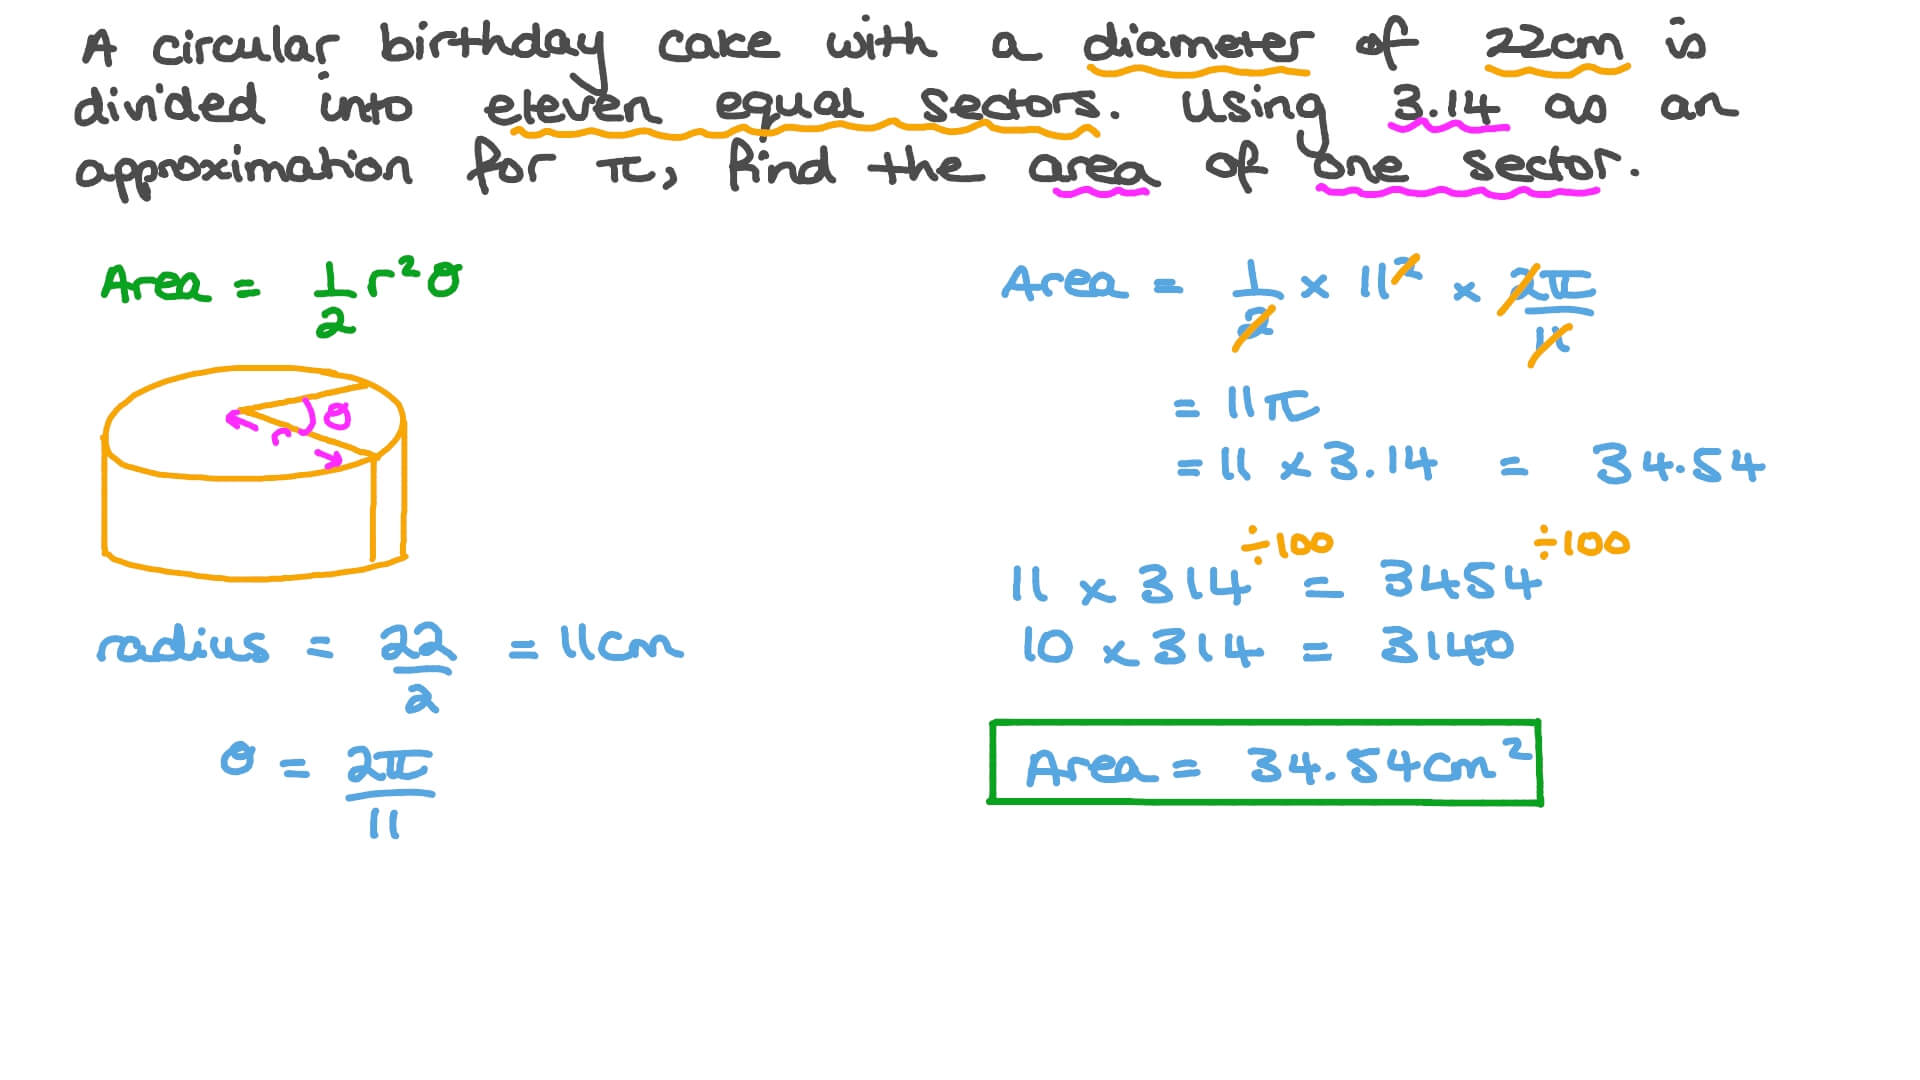 A circular birthday cake with a diameter of 22cm is
divided into eleven equal sectors. Using 3.14 as an
approximation for π, find the area of one sector.
Area = 1/2 r²θ
θ
r
radius = 22/2 = 11cm
θ = 2π/11
Area = 1/2 × 11² × 2π/11
= 11π
= 11 × 3.14 = 34.54
÷100 ÷100
11 × 314 = 3454
10 × 314 = 3140
Area = 34.54cm²